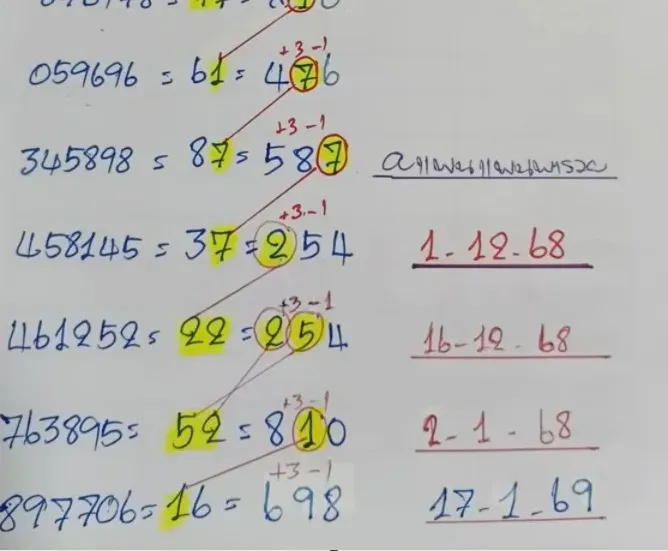 +3-1
059696 = 61 = 476
+3-1
345898 = 87 = 587
+3-1
458145 = 37 = 254 1-12-68
+3-1
461252 = 22 = 254 16-12-68
+3-1
763895 = 52 = 810 2-1-68
+3-1
897706 = 16 = 698 17-1-69